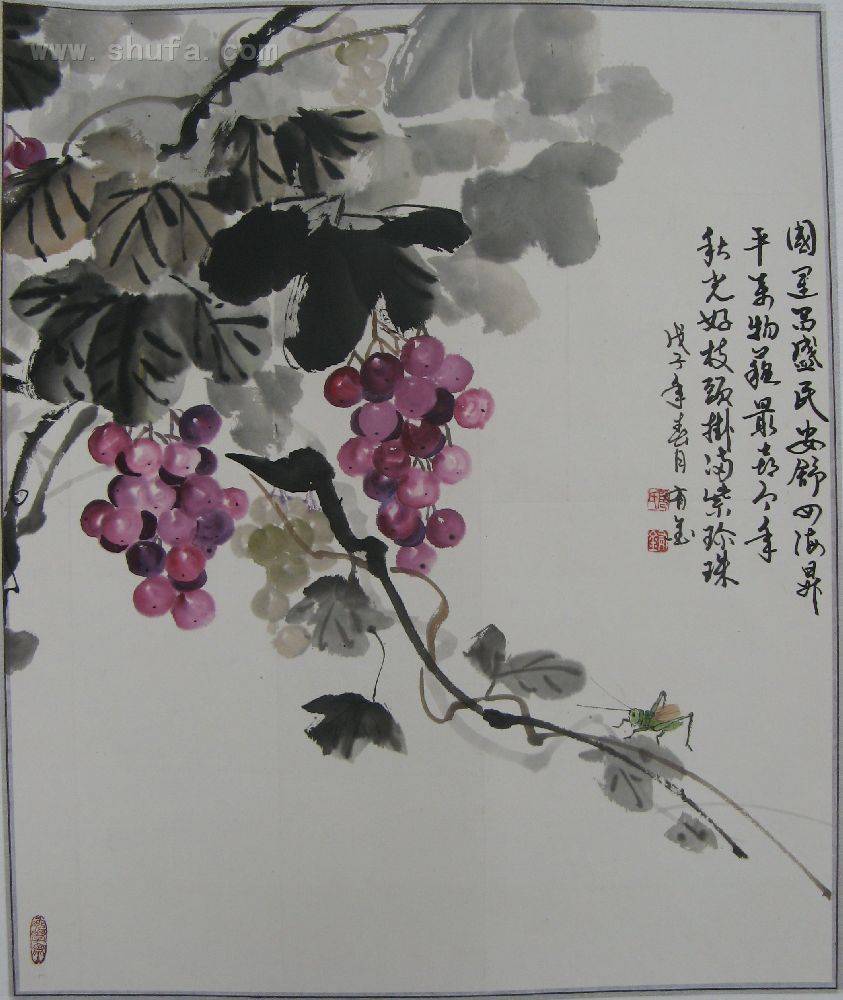 國運昌盛民安舒四海昇
平萬物蘇最喜今年
秋光好枝頭掛滿紫珍珠
戊子年春月有金
www.shufa.com